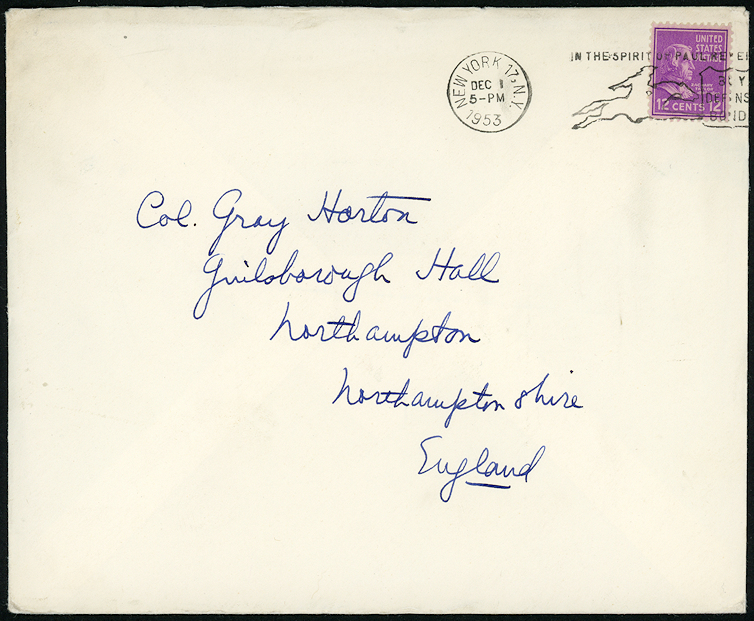 NEW YORK 17, N.Y.
DEC 1
5-PM
1953
IN THE SPIRIT OF PAUL REVERE
BUY
DEFENSE
BONDS
UNITED
STATES
12 CENTS 12
Col. Gray Horton
Guilsborough Hall
Northampton
Northamptonshire
England